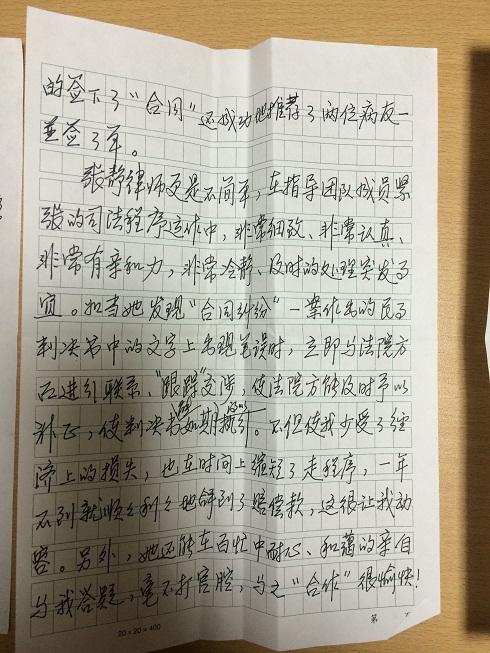 的签下了“合同”还成功地推荐了两位病友一
并签了单。
张静律师更是不简单，在指导团队成员紧
张的司法程序运作中，非常细致、非常认真、
非常有亲和力，非常冷静、及时的处理突发事
宜。如当她发现“合同纠纷”一案作出的民事
判决书中的文字上出现笔误时，立即与法院方
面进行联系、“跟踪”交涉，使法院方能及时予以
补正，使判决书能如期执行。不但使我少受了经
济上的损失，也在时间上缩短了走程序，一年
不到就顺顺利利地得到了赔偿款，这很让我动
容。另外，她还能在百忙中耐心、和蔼的亲自
与我答疑，毫不打官腔，与之“合作”很愉快！
第 页
20×20=400